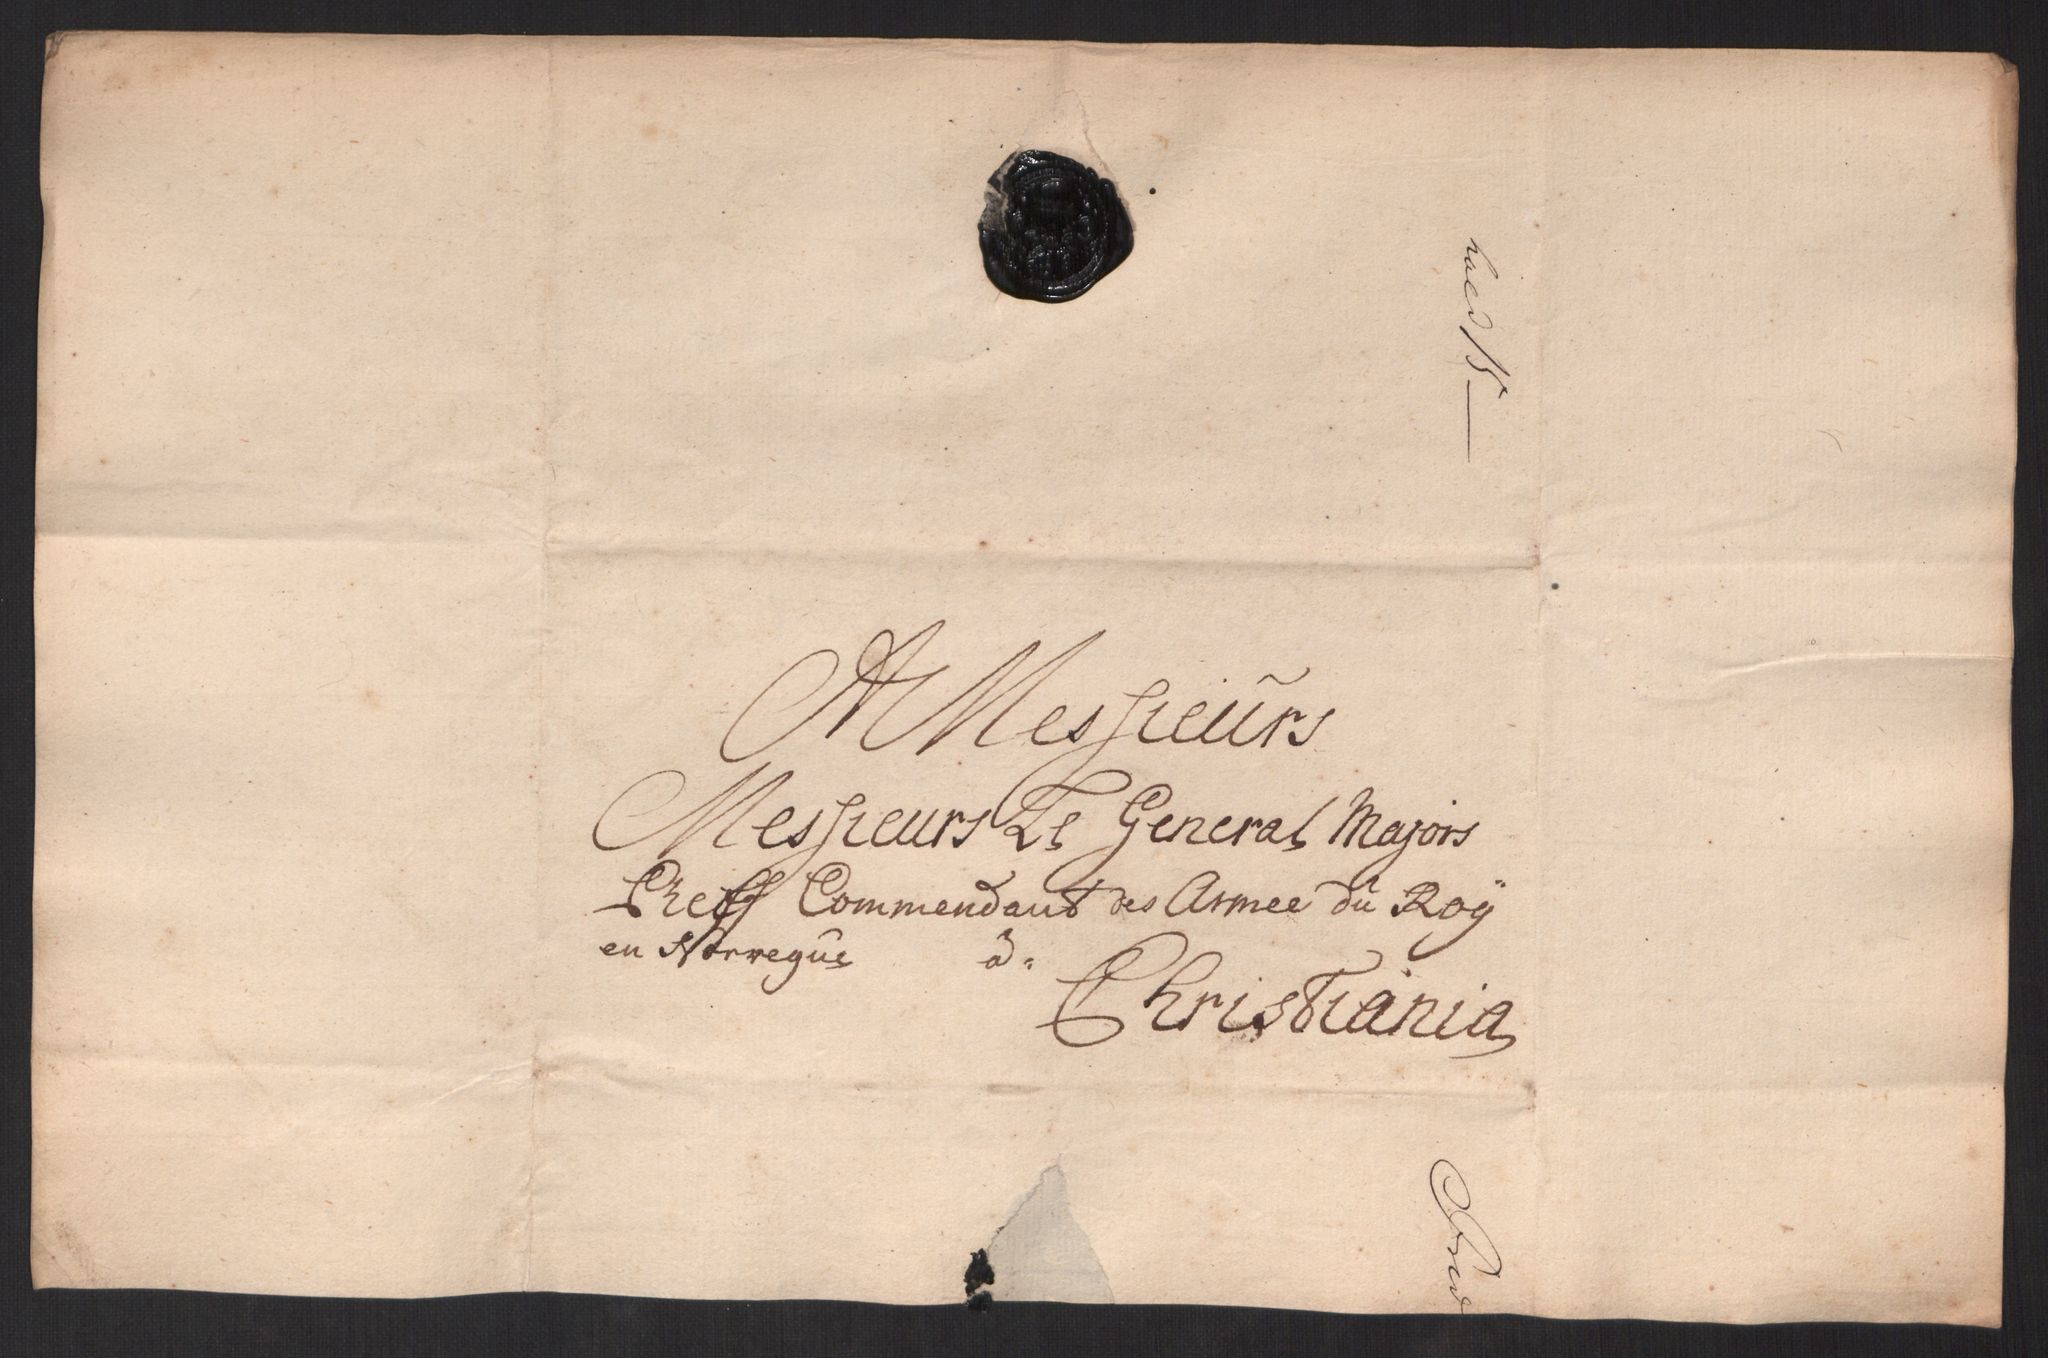 A Messieũrs
Messieurs Le General Majors
Cheff Commendant des Armee dũ Roÿ
en Norregũe à
Christiania